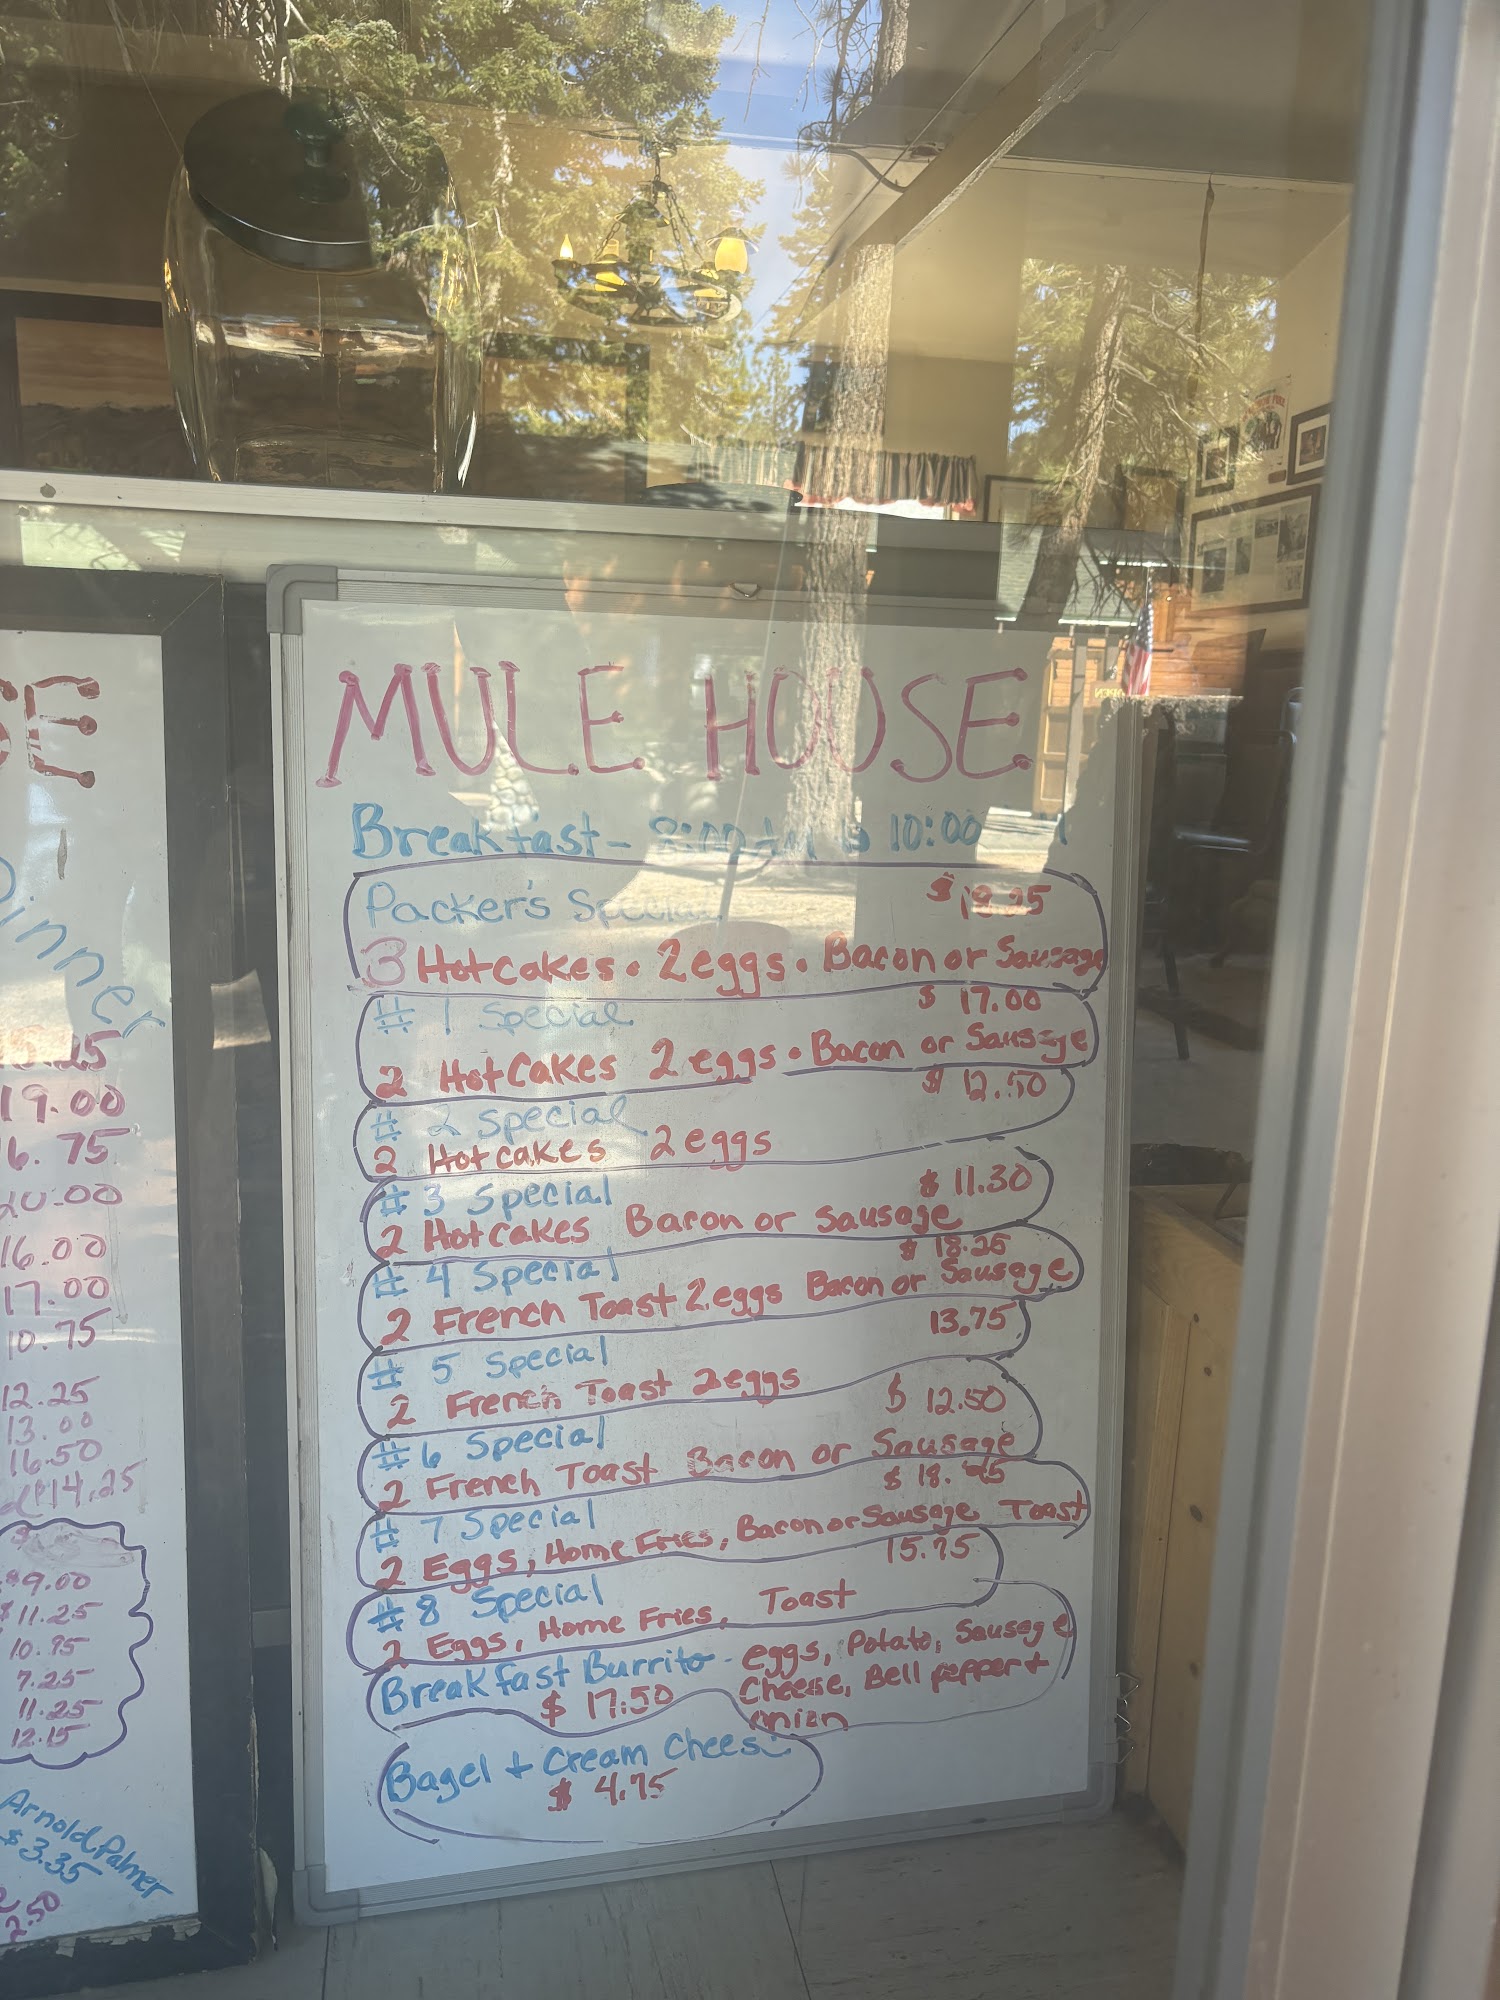 MULE HOUSE
Breakfast - 8:00 AM to 10:00
Packer's Special
3 Hotcakes • 2 eggs • Bacon or Sausage
# 1 Special $ 17.00
2 HotCakes 2 eggs • Bacon or Sausage
# 2 Special $ 12.50
2 Hotcakes 2 eggs
# 3 Special $ 11.30
2 HotCakes Bacon or Sausage
# 4 Special $ 18.25
2 French Toast 2 eggs Bacon or Sausage
# 5 Special 13.75
2 French Toast 2 eggs
# 6 Special $ 12.50
2 French Toast Bacon or Sausage
# 7 Special
2 Eggs, Home Fries, Bacon or Sausage Toast
#8 Special 15.75
2 Eggs, Home Fries, Toast
Breakfast Burrito - eggs, Potato, Sausage
$ 17.50 Cheese, Bell pepper +
onion
Bagel + Cream Cheese
$ 4.75
Dinner
19.00
6.75
16.00
17.00
10.75
12.25
13.00
16.50
14.25
$9.00
$11.25
10.95
7.25
11.25
12.15
Arnold Palmer
$3.35
2.50
OPEN